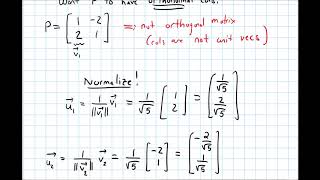 Want P to have orthonormal cols!
P = [1 -2; 2 1] ⇒ not orthogonal matrix
v⃗₁ (cols are not unit vecs)
Normalize!
u⃗₁ = 1/‖v⃗₁‖ v⃗₁ = 1/√5 [1; 2] = [1/√5; 2/√5]
u⃗₂ = 1/‖v⃗₂‖ v⃗₂ = 1/√5 [-2; 1] = [-2/√5; 1/√5]